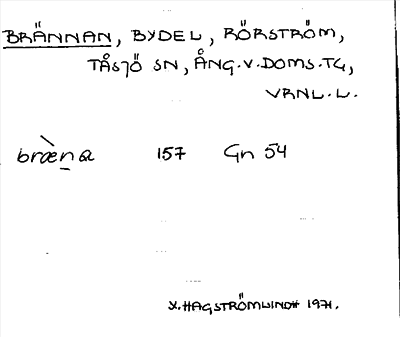 BRÄNNAN, BYDEL, RÖRSTRÖM,
TÅSJÖ SN, ÅNG.V.DOMS.TG,
VRNL.L.
bræ̀na 157 Gn 54
X.HAGSTRÖMLINDH 1971.